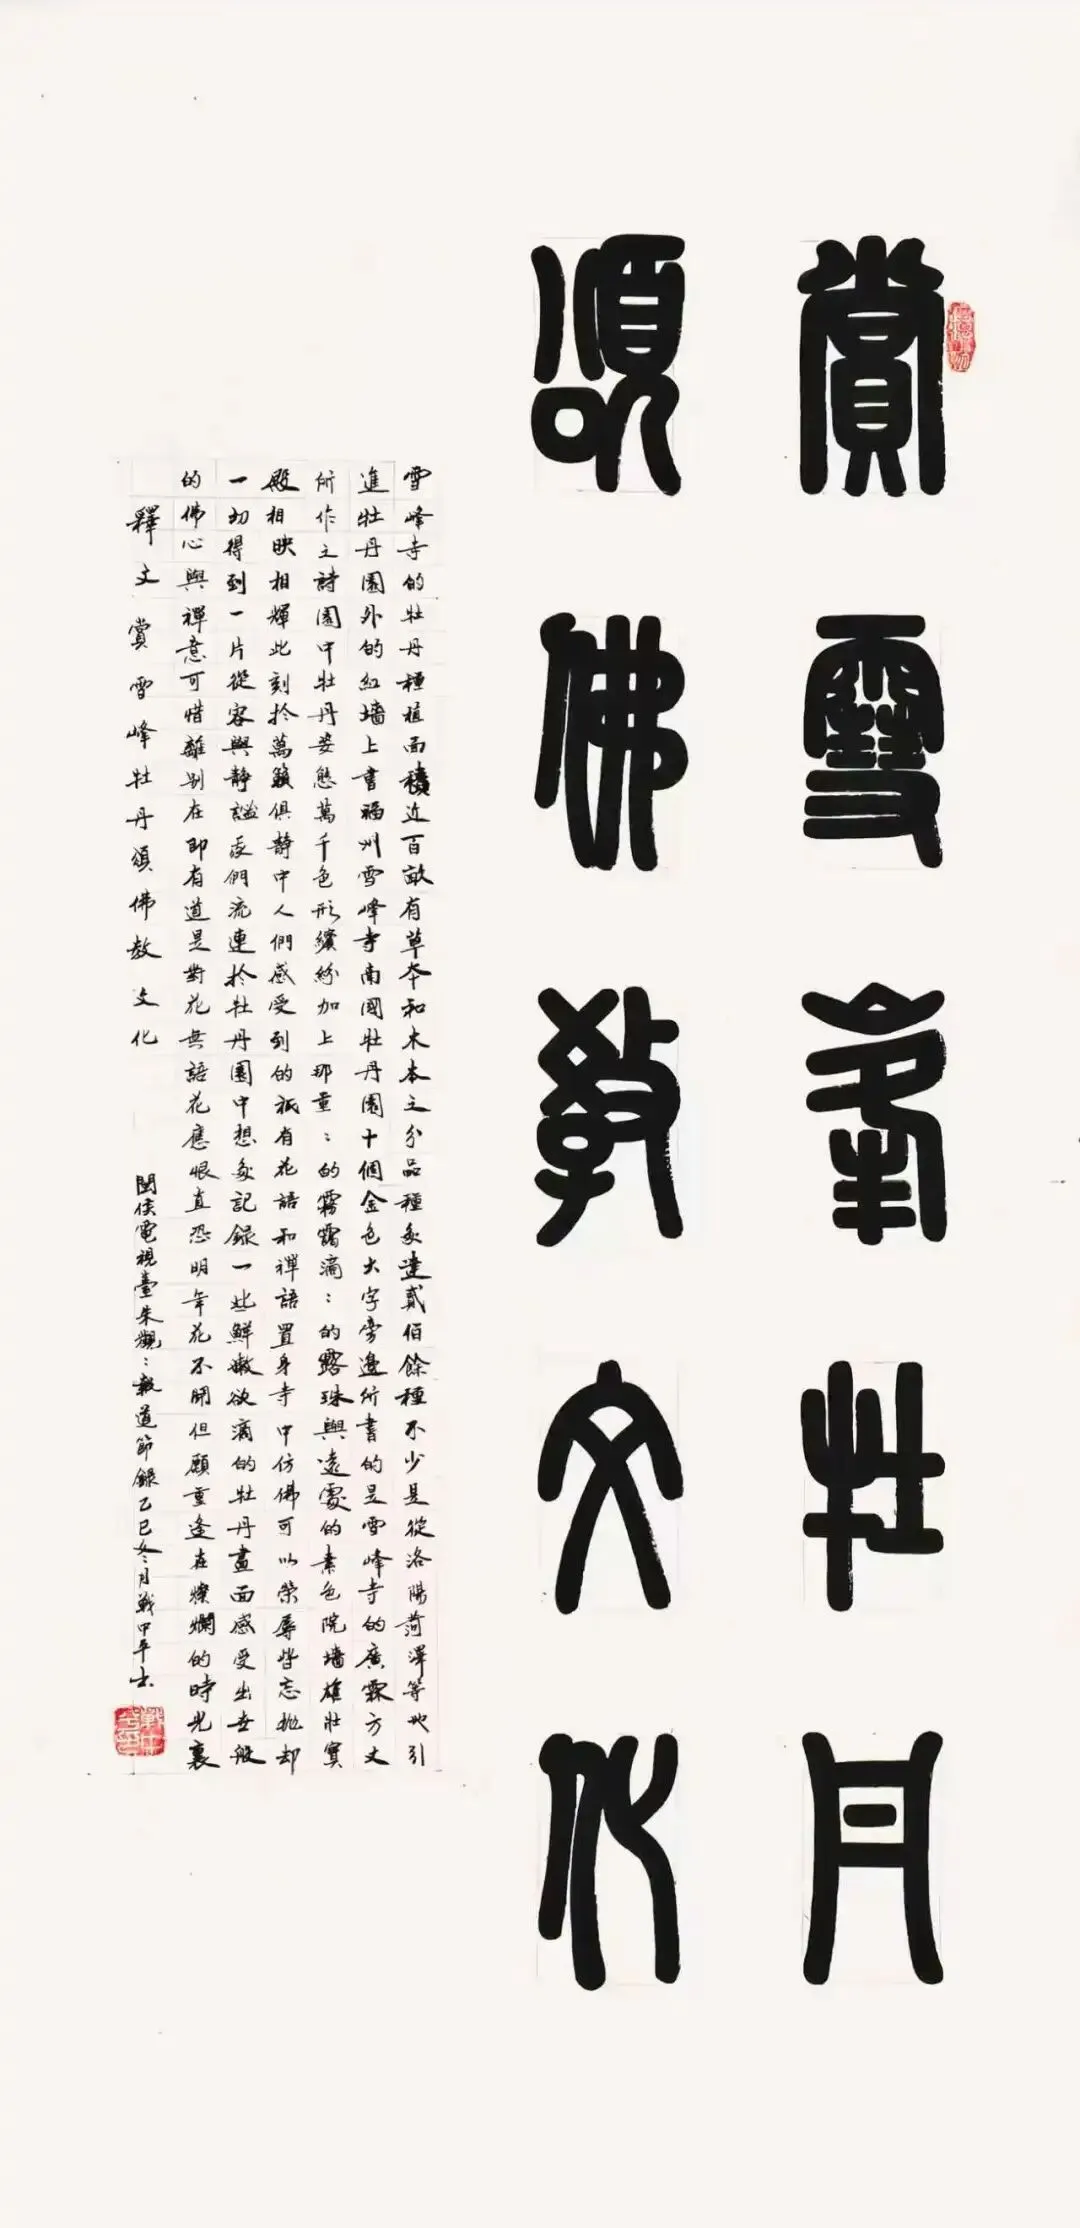 賞雪峯牡丹
頌佛教文化
雪峰寺的牡丹種植面積近百畝有草本和木本之分品種多達貳佰餘種不少是從洛陽菏澤等地引
進牡丹園外的紅墻上書福州雪峰寺南國牡丹園十個金色大字旁邊所書的是雪峰寺的廣霖方丈
所作之詩園中牡丹姿態萬千色形繽紛加上那重：的霧靄滴：的露珠與遠處的素色院墻雄壯寶
殿相映相輝此刻於萬籟俱靜中人們感受到的祇有花語和禪語置身寺中仿佛可以榮辱皆忘拋却
一切得到一片從容與静謐我們流連於牡丹園中想多記録一些鮮嫩欲滴的牡丹畫面感受出世般
的佛心與禪意可惜離别在即有道是對花無語花應恨直恐明年花不開但願重逢在燦爛的時光裏
釋文賞雪峰牡丹頌佛教文化
閩侯電視臺朱觀：報道節録乙巳冬月戰中平书